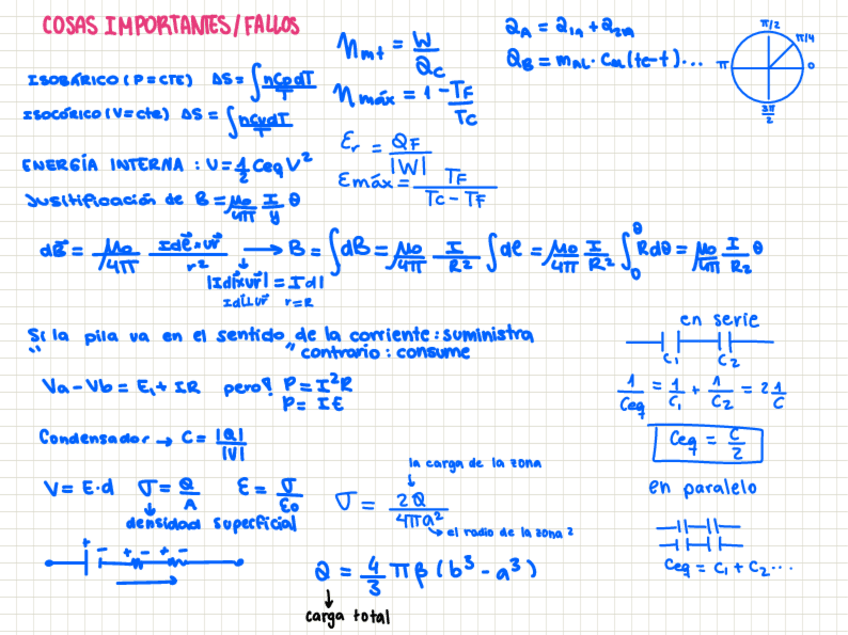 COSAS IMPORTANTES/FALLOS
ISOBÁRICO (P=CTE) ΔS = ∫ nCpdT/T
ISOCÓRICO (V=cte) ΔS = ∫ nCvdT/T
ENERGÍA INTERNA : U = 1/2 Ceq V²
Justificación de B = μo/4π I/y θ
ηmt = W/Qc
ηmáx = 1 - TF/TC
Er = QF/|W|
Emáx = TF/(Tc - TF)
QA = Q1A + Q2A
QB = mAL · CAL (te-t)...
π/2
π/4
π
0
3π/2
dB = μo/4π Idl×ur/r² → B = ∫dB = μo/4π I/R² ∫dl = μo/4π I/R² ∫₀^θ Rdθ = μo/4π I/R₂ θ
|Idl×ur| = Idl
Idl⊥ur r=R
Si la pila va en el sentido de la corriente : suministra
" " contrario : consume
Va - Vb = E₁ + IR pero! P = I²R
P = IE
Condensador → C = |Q|/|V|
V = E·d σ = Q/A E = σ/εo
densidad superficial
la carga de la zona
σ = 2Q/4πa²
el radio de la zona 2
Q = 4/3 πβ (b³ - a³)
carga total
en serie
C₁ C₂
1/Ceq = 1/C₁ + 1/C₂ = 2 1/C
Ceq = C/2
en paralelo
Ceq = C₁ + C₂...